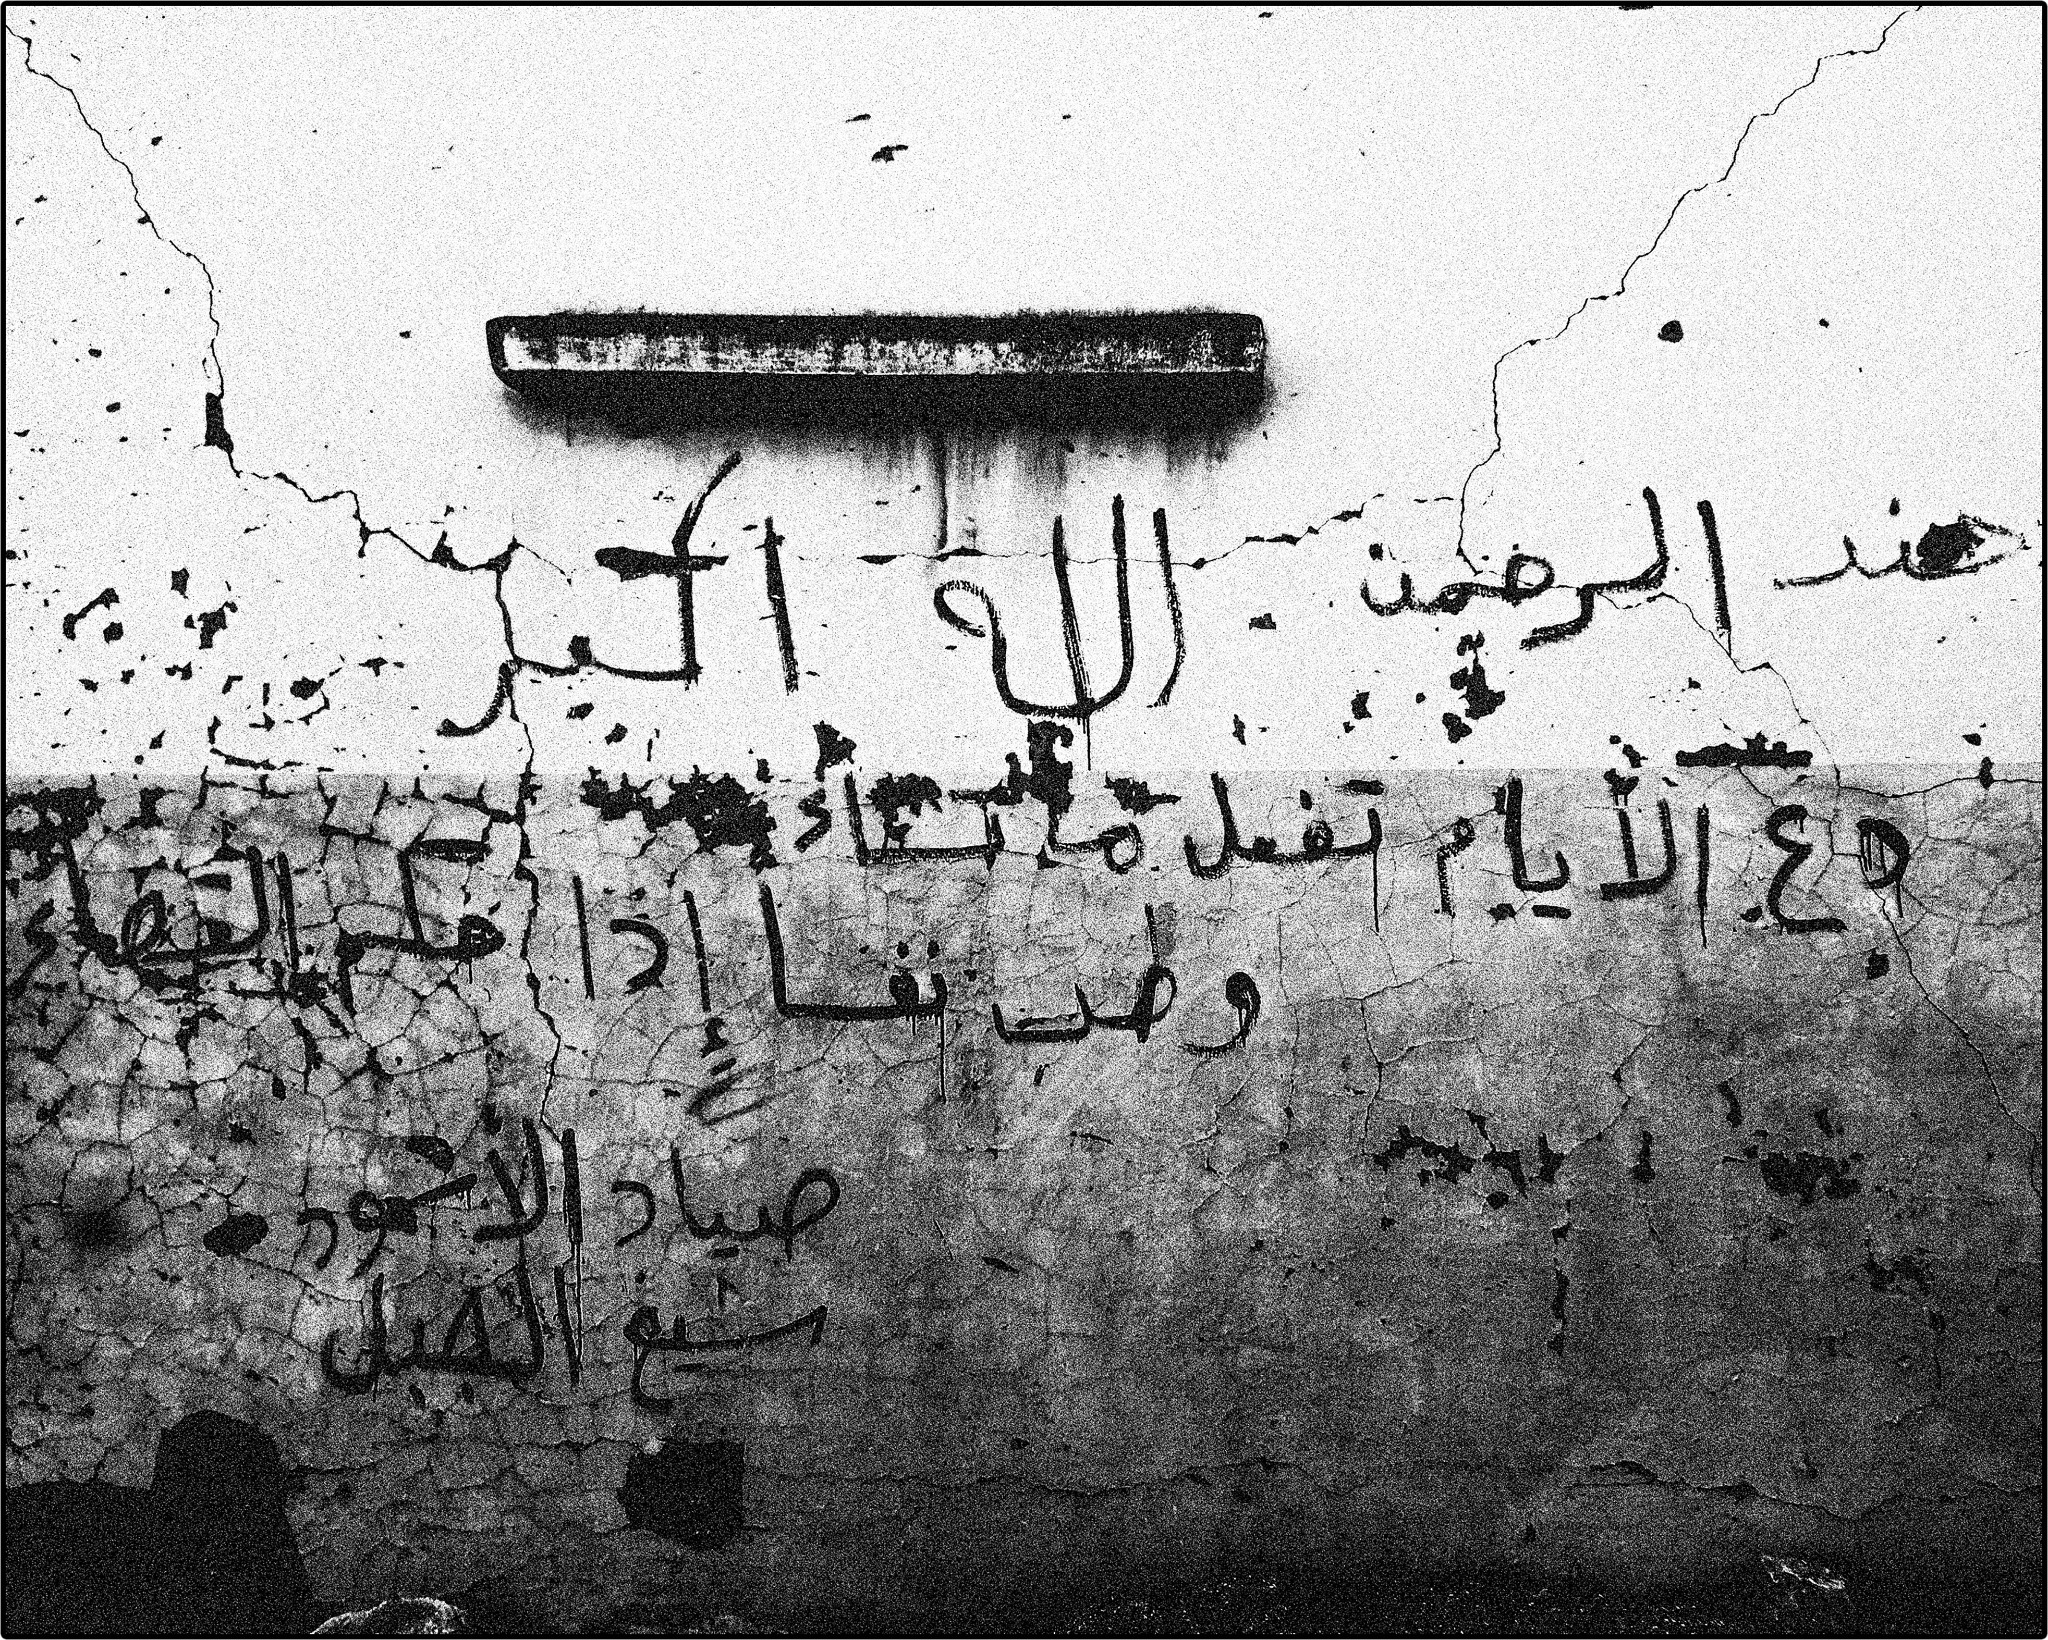 جند الرحمن
الله اكبر
دع الأيام تفعل ما تشاء
وطب نفسا إذا حكم القضاء
صياد
سبع الليل